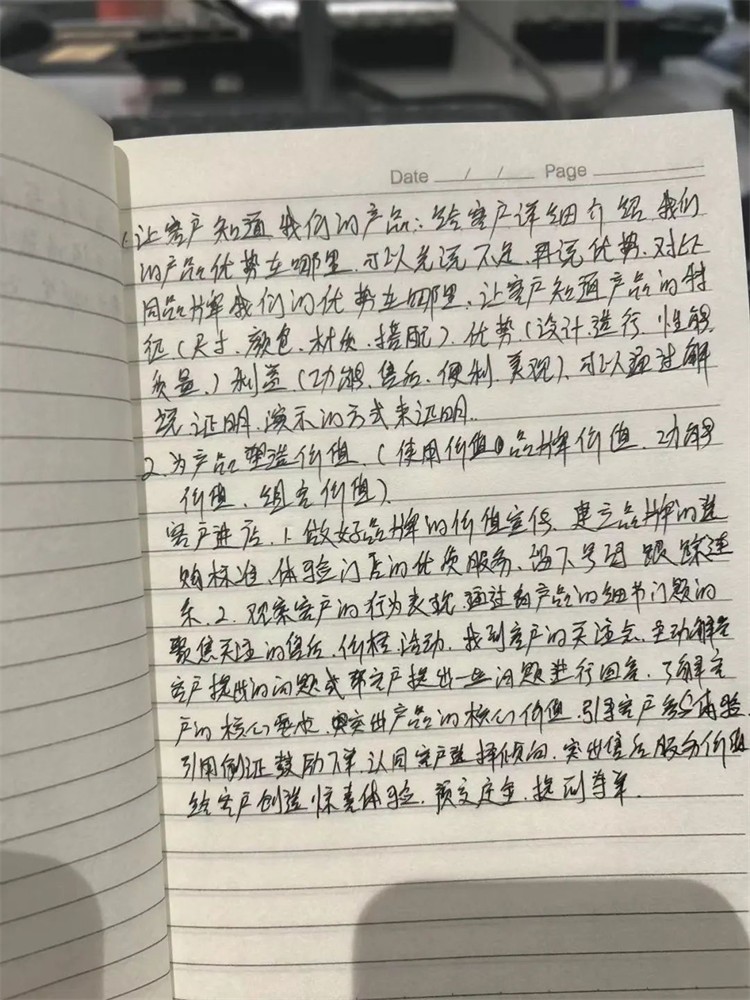 Date / / Page
1.让客户知道我们的产品:给客户详细介绍我们
的产品优势在哪里.可以先说不足.再说优势.对比
同品牌我们的优势在哪里.让客户知道产品的特
征(尺寸.颜色.材质.搭配).优势(设计.进行.性能
质量.)利益(功能.售后.便利.美观).可以通过解
说证明.演示的方式来证明.
2.为产品塑造价值.(使用价值 品牌价值.功能
价值.组合价值).
客户进店.1.做好品牌的价值宣传.建立品牌的选
购标准.体验门店的优质服务.留下号码 跟踪连
系.2.观察客户的行为表现 通过 产品的细节问题的
聚焦关注的售后.价格.活动.找到客户的关注点.主动解答
客户提出的问题或帮客户提出一些问题进行回答.了解客
户的核心 突出产品的核心价值.引导客户参与体验.
引用例证鼓励下单.认同客户选择倾向.突出售后服务价值
给客户创造惊喜体验.预交定金.提到尊享.